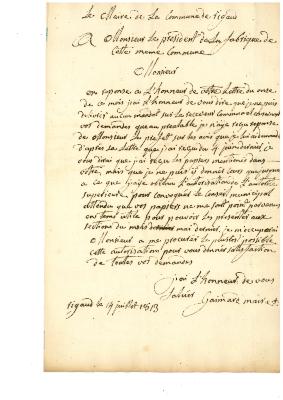 Le Maire de la Commune de rigaud
A Monsieur Le président de La fabrique de
Cette meme Commune
Monsieur
en reponse a L'honneur de votre Lettre du onze
de ce mois j'ai L'honneur de vous dire que je ne puis
delivrer aucun mandat sur Le receveur Communal
vos demandes qu'au prealable je n'aye reçu reponse
de Monsieur Le prefet sur les avis que je lui ai demandé
d'apres sa Lettre que j'ai reçu du 4 juin dernier je
vous dirai que j'ai reçu les papiers mentionés dans
votre, mais que je ne puis y donner cours jusques
a ce que j'aye obtenu L'autorisation de L'autorité
superieure pour convoquer Le Conseil municipal
attendu que vos papiers ne me sont point parvenus
en tems utile pour pouvoir les presenter aux
sections du mois de mai dernier, je m'occuperai
Monsieur a me procurer Le plutot possible
cette autorisation pour vous donner satisfaction
de toutes vos demandes
j'ai L'honneur de vous
Saluer
rigaud le 14 juillet 1813